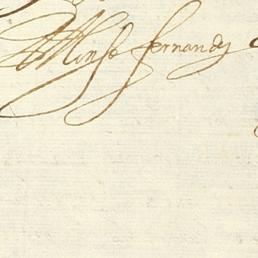 Alonso fernandez